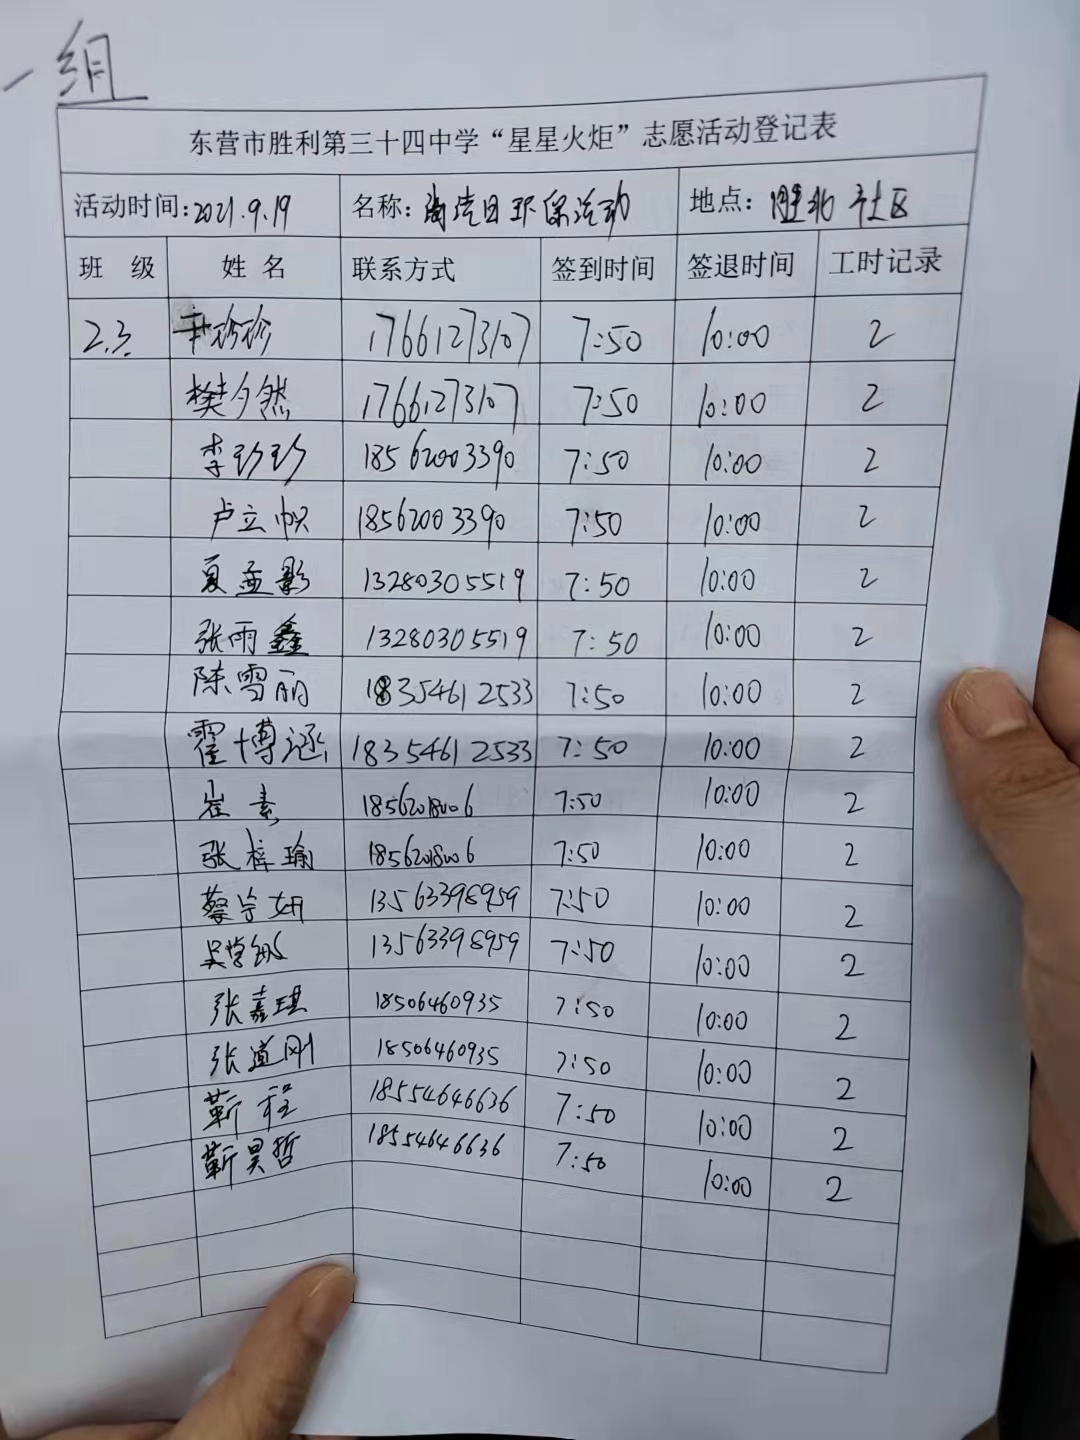 一组
东营市胜利第三十四中学“星星火炬”志愿活动登记表
活动时间:2021.9.19 名称: 海洁日环保活动 地点: 胜北社区
班 级 姓 名 联系方式 签到时间 签退时间 工时记录
2.3. 珍珍 17661273107 7:50 10:00 2
樊夕然 17661273107 7:50 10:00 2
李珍珍 18562003390 7:50 10:00 2
卢立帜 18562003390 7:50 10:00 2
夏孟影 13280305519 7:50 10:00 2
张雨鑫 13280305519 7:50 10:00 2
陈雪丽 18354612533 7:50 10:00 2
霍博涵 18354612533 7:50 10:00 2
崔素 18562018006 7:50 10:00 2
张梓瑜 18562018006 7:50 10:00 2
蔡宗妍 13563398959 7:50 10:00 2
吴学敏 13563398959 7:50 10:00 2
张嘉琪 18506460935 7:50 10:00 2
张道刚 18506460935 7:50 10:00 2
靳程 18554646636 7:50 10:00 2
靳昊哲 18554646636 7:50 10:00 2